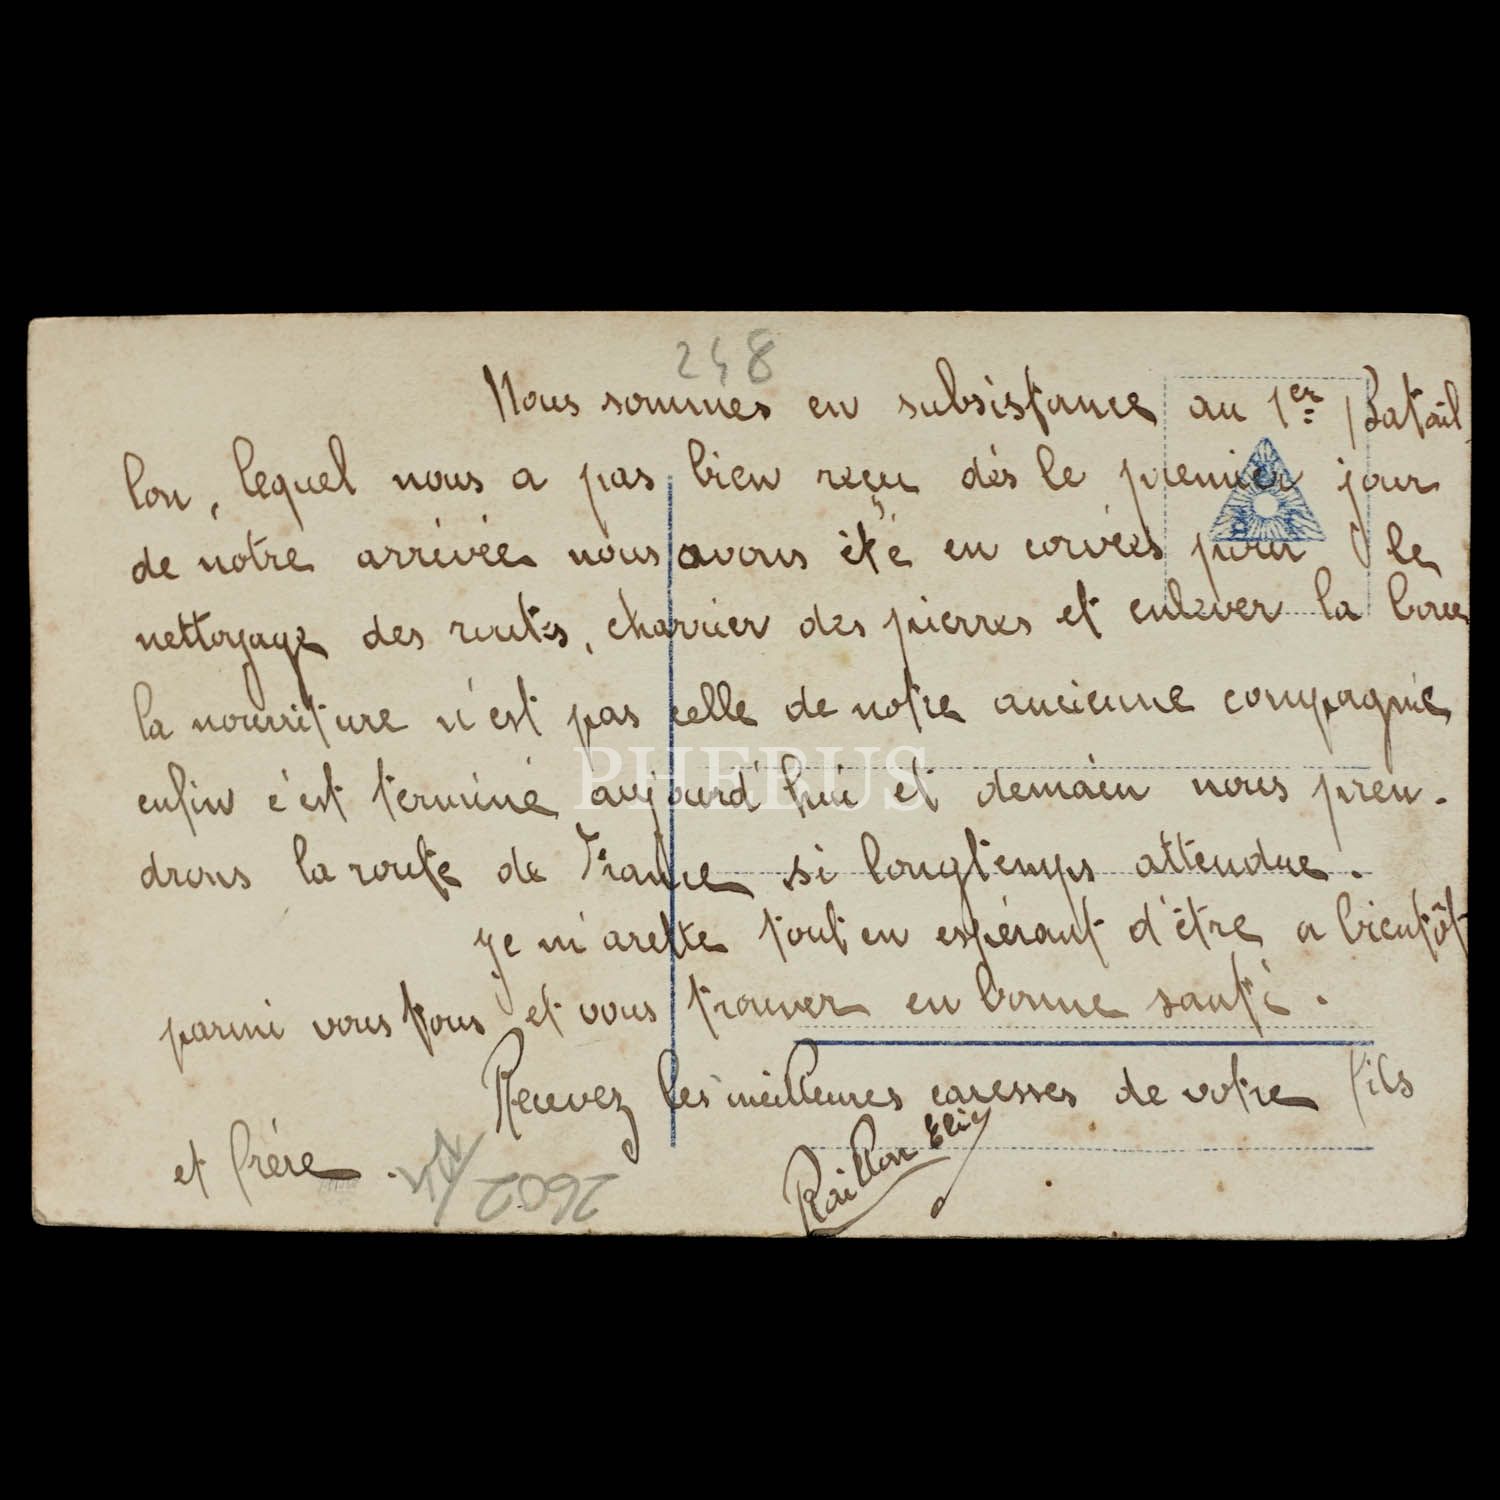 248
Nous sommes en subsistance au 1er Batail
lon, lequel nous a pas bien reçu dés le premier jour
de notre arrivée nous avons été en corvées pour le
nettoyage des routes, charrier des pierres et enlever la boue
la nourriture n'est pas celle de notre ancienne compagnie
PHEBUS
enfin c'est terminé aujourd'hui et demain nous pren-
drons la route de France si longtemps attendue.
Je m'arette tout en espérant d'être a bientôt
parmi vous tous et vous trouver en bonne santé.
Recevez les meilleures caresses de votre fils
et frére.
2602
Raillon Elie